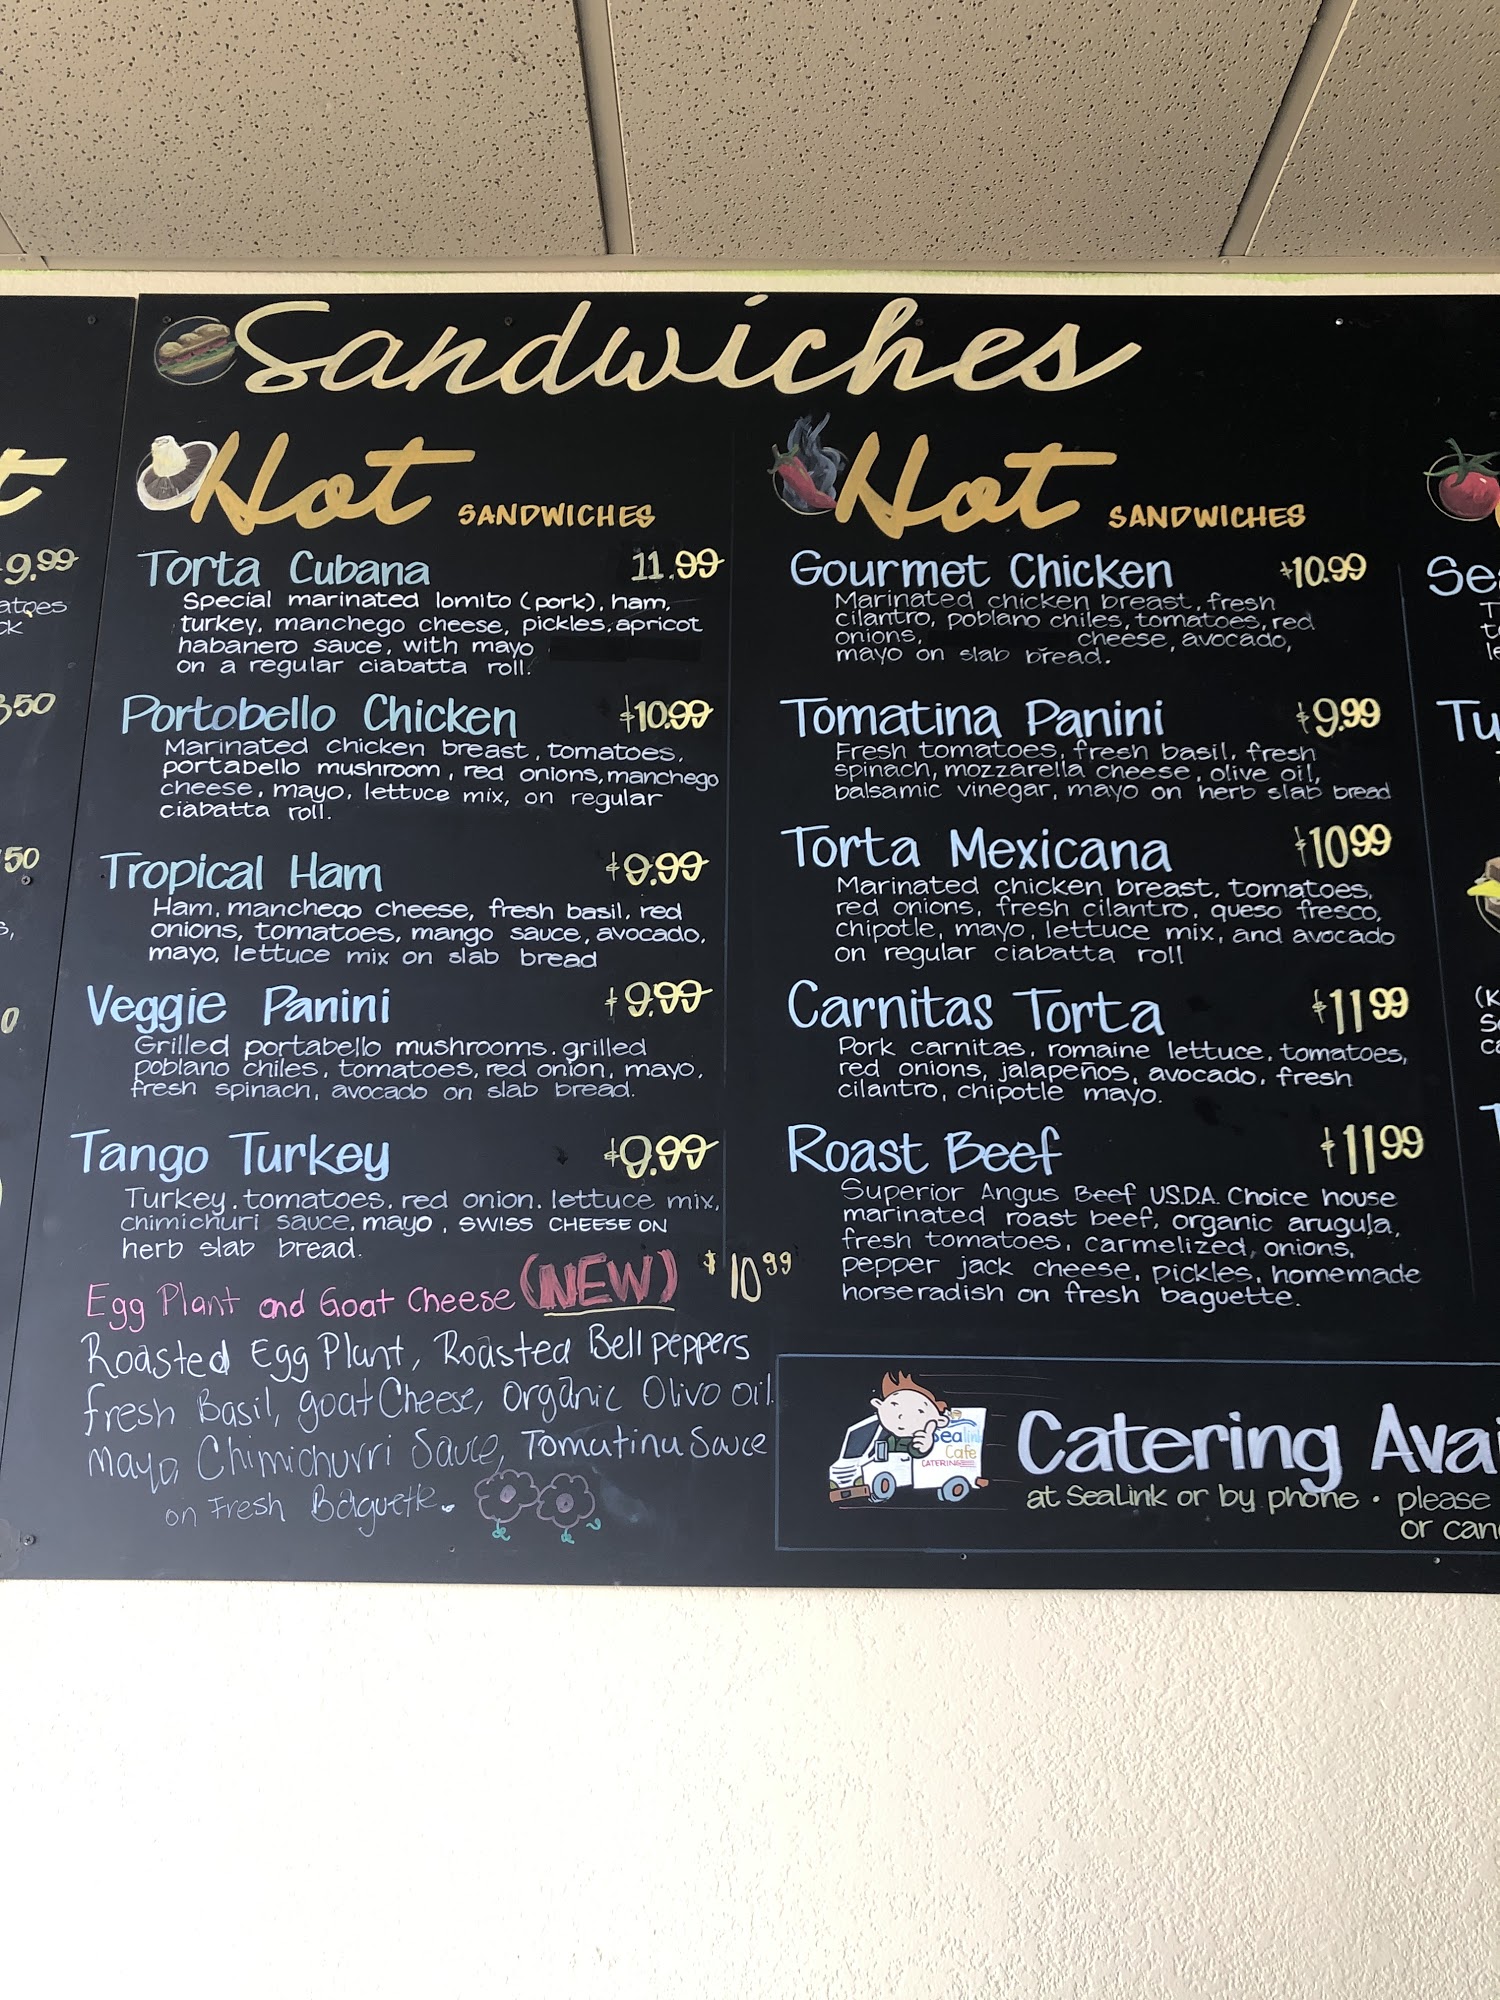 Sandwiches
t
9.99
atoes
ck
50
50
s,
0
Hot SANDWICHES
Torta Cubana 11.99
Special marinated lomito (pork), ham,
turkey, manchego cheese, pickles, apricot
habanero sauce, with mayo
on a regular ciabatta roll.
Portobello Chicken $10.99
Marinated chicken breast, tomatoes,
portabello mushroom, red onions, manchego
cheese, mayo, lettuce mix, on regular
ciabatta roll.
Tropical Ham $9.99
Ham, manchego cheese, fresh basil, red
onions, tomatoes, mango sauce, avocado,
mayo, lettuce mix on slab bread
Veggie Panini $9.99
Grilled portabello mushrooms. grilled
poblano chiles, tomatoes, red onion, mayo,
fresh spinach, avocado on slab bread.
Tango Turkey $9.99
Turkey, tomatoes, red onion. lettuce mix,
chimichuri sauce, mayo, SWISS CHEESE ON
herb slab bread.
Egg Plant and Goat Cheese (NEW) $10.99
Roasted Egg Plant, Roasted Bell peppers
fresh Basil, goat Cheese, Organic Olivo oil
Mayo, Chimichurri Sauce, Tomatina Sauce
on Fresh Baguette.
Hot SANDWICHES
Gourmet Chicken $10.99
Marinated chicken breast, fresh
cilantro, poblano chiles, tomatoes, red
onions, cheese, avocado,
mayo on slab bread.
Tomatina Panini $9.99
Fresh tomatoes, fresh basil, fresh
spinach, mozzarella cheese, olive oil,
balsamic vinegar, mayo on herb slab bread
Torta Mexicana $10.99
Marinated chicken breast, tomatoes,
red onions, fresh cilantro, queso fresco,
chipotle, mayo, lettuce mix, and avocado
on regular ciabatta roll
Carnitas Torta $11.99
Pork carnitas, romaine lettuce, tomatoes,
red onions, jalapeños, avocado, fresh
cilantro, chipotle mayo.
Roast Beef $11.99
Superior Angus Beef U.S.D.A. Choice house
marinated roast beef, organic arugula,
fresh tomatoes, carmelized, onions,
pepper jack cheese, pickles, homemade
horseradish on fresh baguette.
Sealink
Cafe
CATERING
Catering Avai
at SeaLink or by phone • please
or can
Se
Tu
(K